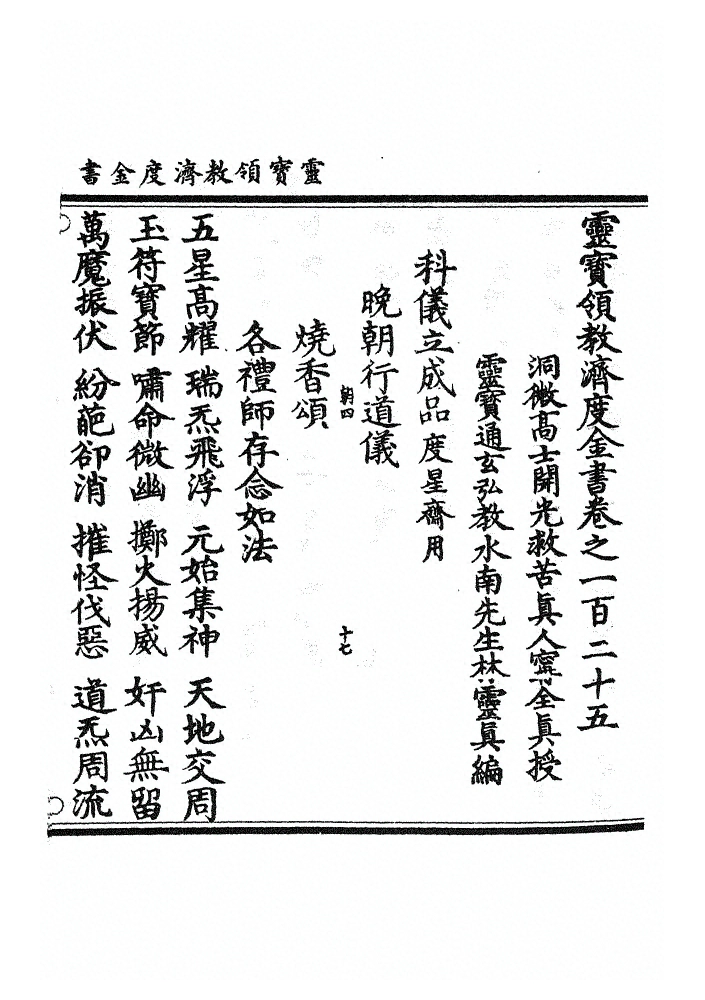 靈寶領教濟度金書
靈寶領教濟度金書卷之一百二十五
洞微高士開光救苦真人寗全真授
靈寶通玄弘教水南先生林靈真編
科儀立成品度星齋用
晚朝行道儀
朝四
十七
燒香頌
各禮師存念如法
五星高耀 瑞炁飛浮 元始集神 天地交周
玉符寶節 嘯命微幽 擲火揚威 奸凶無留
萬魔振伏 紛葩卻消 摧怪伐惡 道炁周流